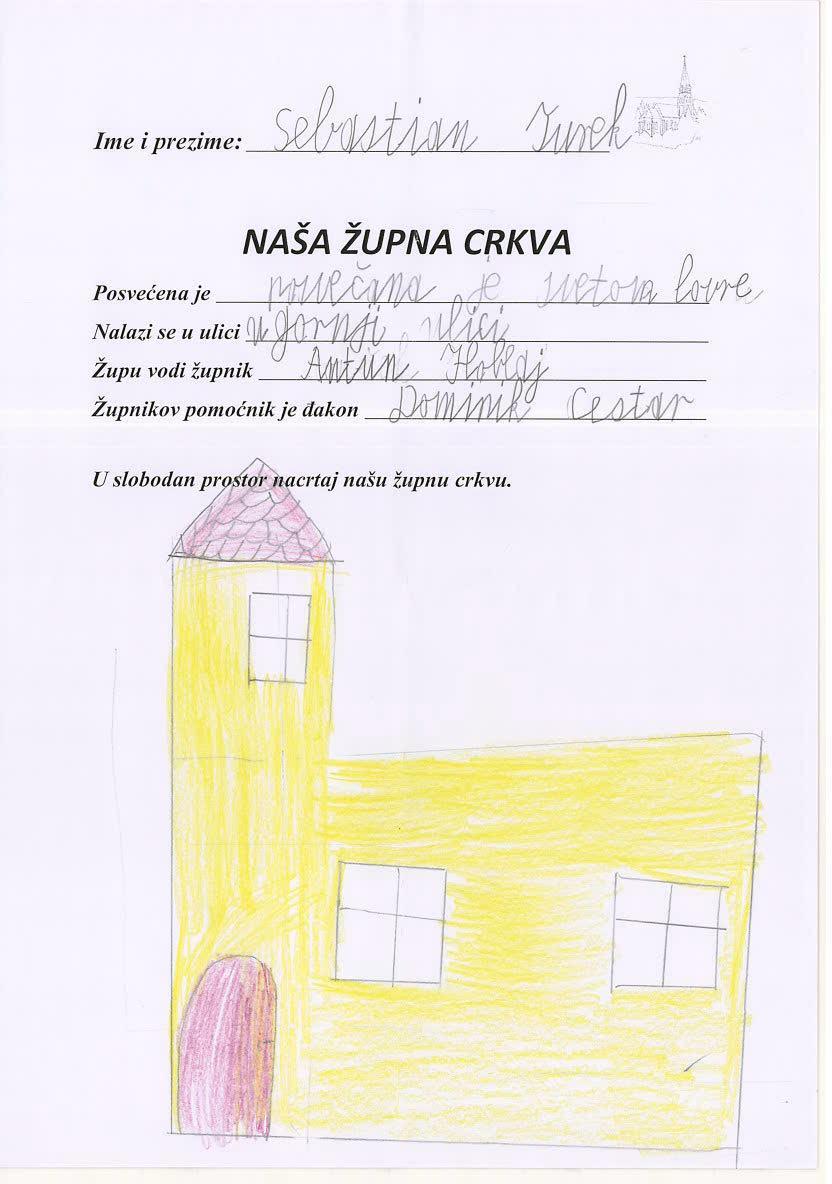 Ime i prezime: Sebastian Jurek
NAŠA ŽUPNA CRKVA
Posvećena je posvečana je svetom lovre
Nalazi se u ulici u gornji ulici
Župu vodi župnik Antun Hoblaj
Župnikov pomoćnik je đakon Dominik Cestar
U slobodan prostor nacrtaj našu župnu crkvu.